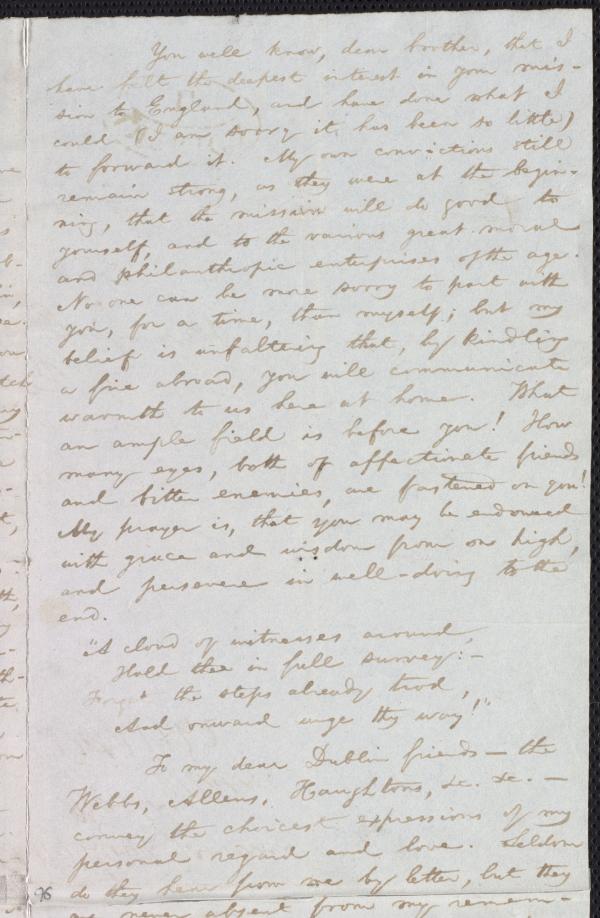 You well know, dear brother, that I
have felt the deepest interest in your mis-
sion to England, and have done what I
could (I am sorry it has been so little)
to forward it. My own convictions still
remain strong, as they were at the begin-
ning, that the mission will do good to
yourself, and to the various great moral
and philanthropic enterprises of the age.
No one can be more sorry to part with
you, for a time, than myself; but my
belief is unfaltering that, by kindling
a fire abroad, you will communicate
warmth to us here at home. What
an ample field is before you! How
many eyes, both of affectionate friends
and bitter enemies, are fastened on you!
My prayer is, that you may be endowed
with grace and wisdom from on high,
and persevere in well-doing to the
end.
"A cloud of witnesses around,
Hold thee in full survey:—
Forget the steps already trod,
And onward urge thy way!"
To my dear Dublin friends — the
Webbs, Allens, Haughtons, &c. &c. —
convey the choicest expressions of my
personal regard and love. Seldom
do they hear from me by letter, but they
are never absent from my remem-
96